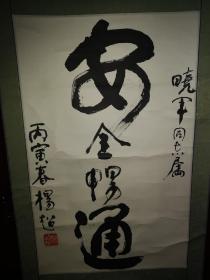 曉軍同志属
安全暢通
丙寅春楊超